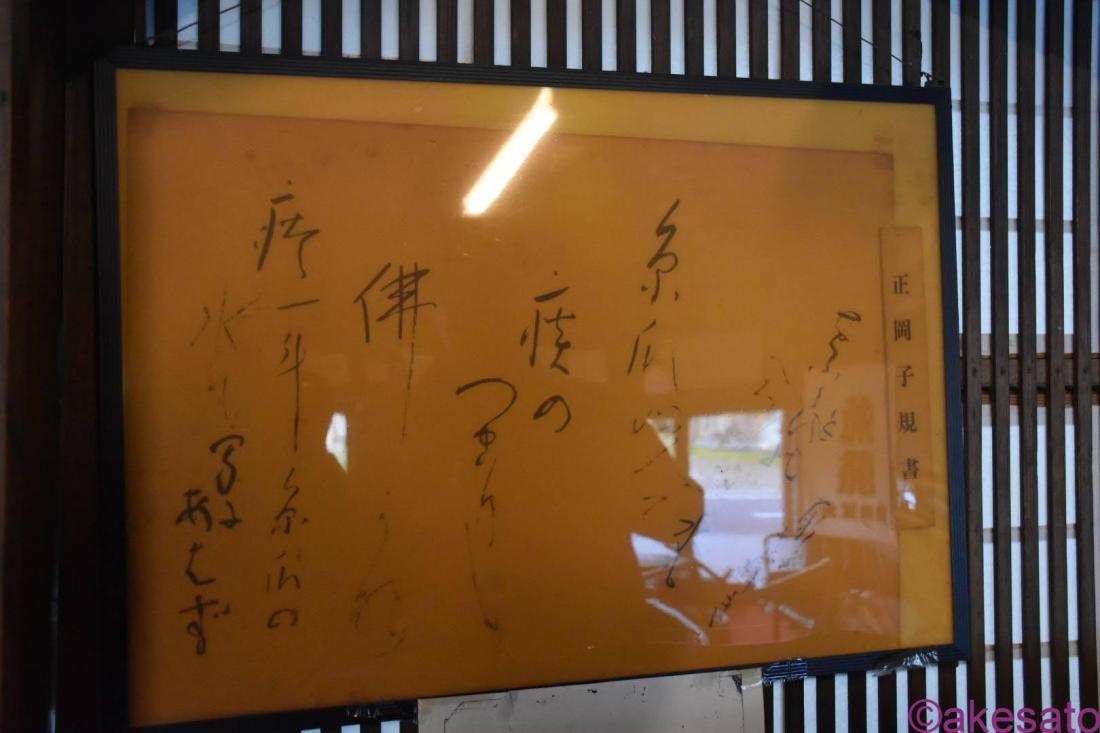 正岡子規書
糸瓜咲て
痰の
つまりし
佛かな
痰一斗糸瓜の
水も間に
あはず
©akesato